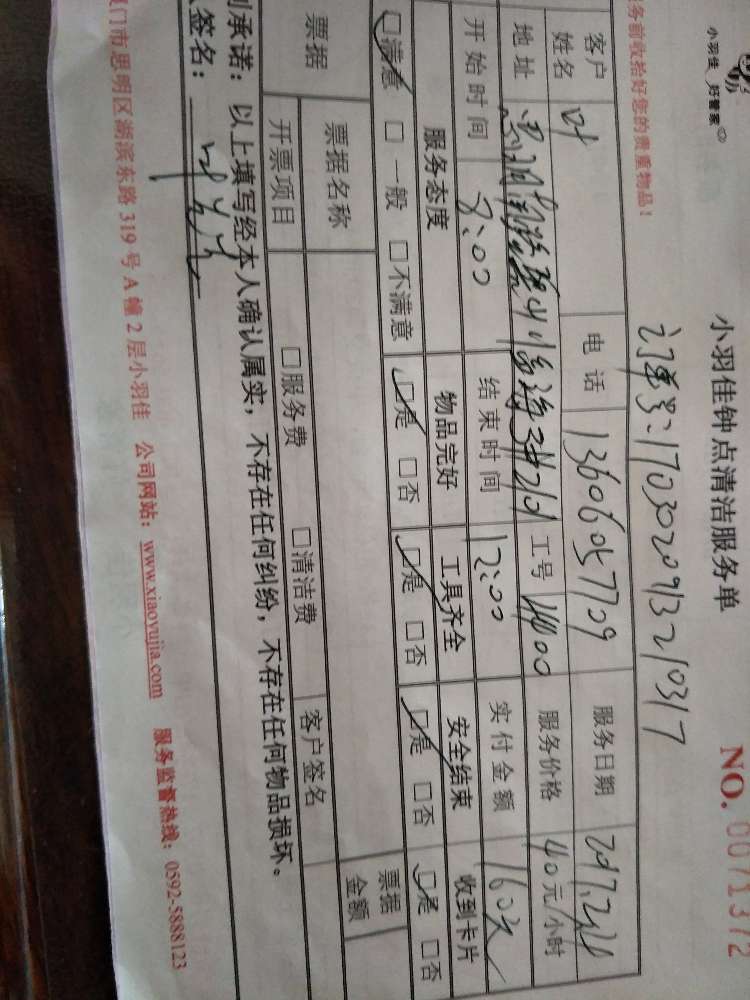 小羽佳 好管家
小羽佳钟点清洁服务单
NO. 0071372
务前收拾好您的贵重物品!
订单号:1703020913210317
客户姓名 叶 电话 13606057709 服务日期
地址 工号 服务价格 40元/小时
开始时间 8:00 结束时间 12:00 实付金额 160元
服务态度 物品完好 工具齐全 安全结束 收到卡片
□满意 □一般 □不满意 □是 □否 □是 □否 □是 □否 □是 □否
票据 票据名称 票据金额
开票项目 □服务费 □清洁费 客户签名
承诺:以上填写经本人确认属实,不存在任何纠纷,不存在任何物品损坏。
签名:
门市思明区湖滨东路319号A幢2层小羽佳 公司网站:www.xiaoyujia.com 服务监督热线:0592-5888123